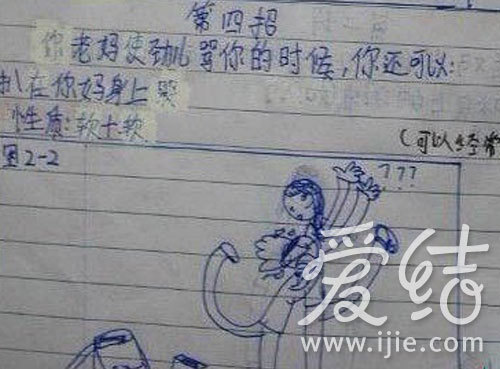 第四招
你老妈使劲儿骂你的时候,你还可以:
扒在你妈身上哭
性质:软+软
(可以经常
图2-2
???
爱结
www.ijie.com